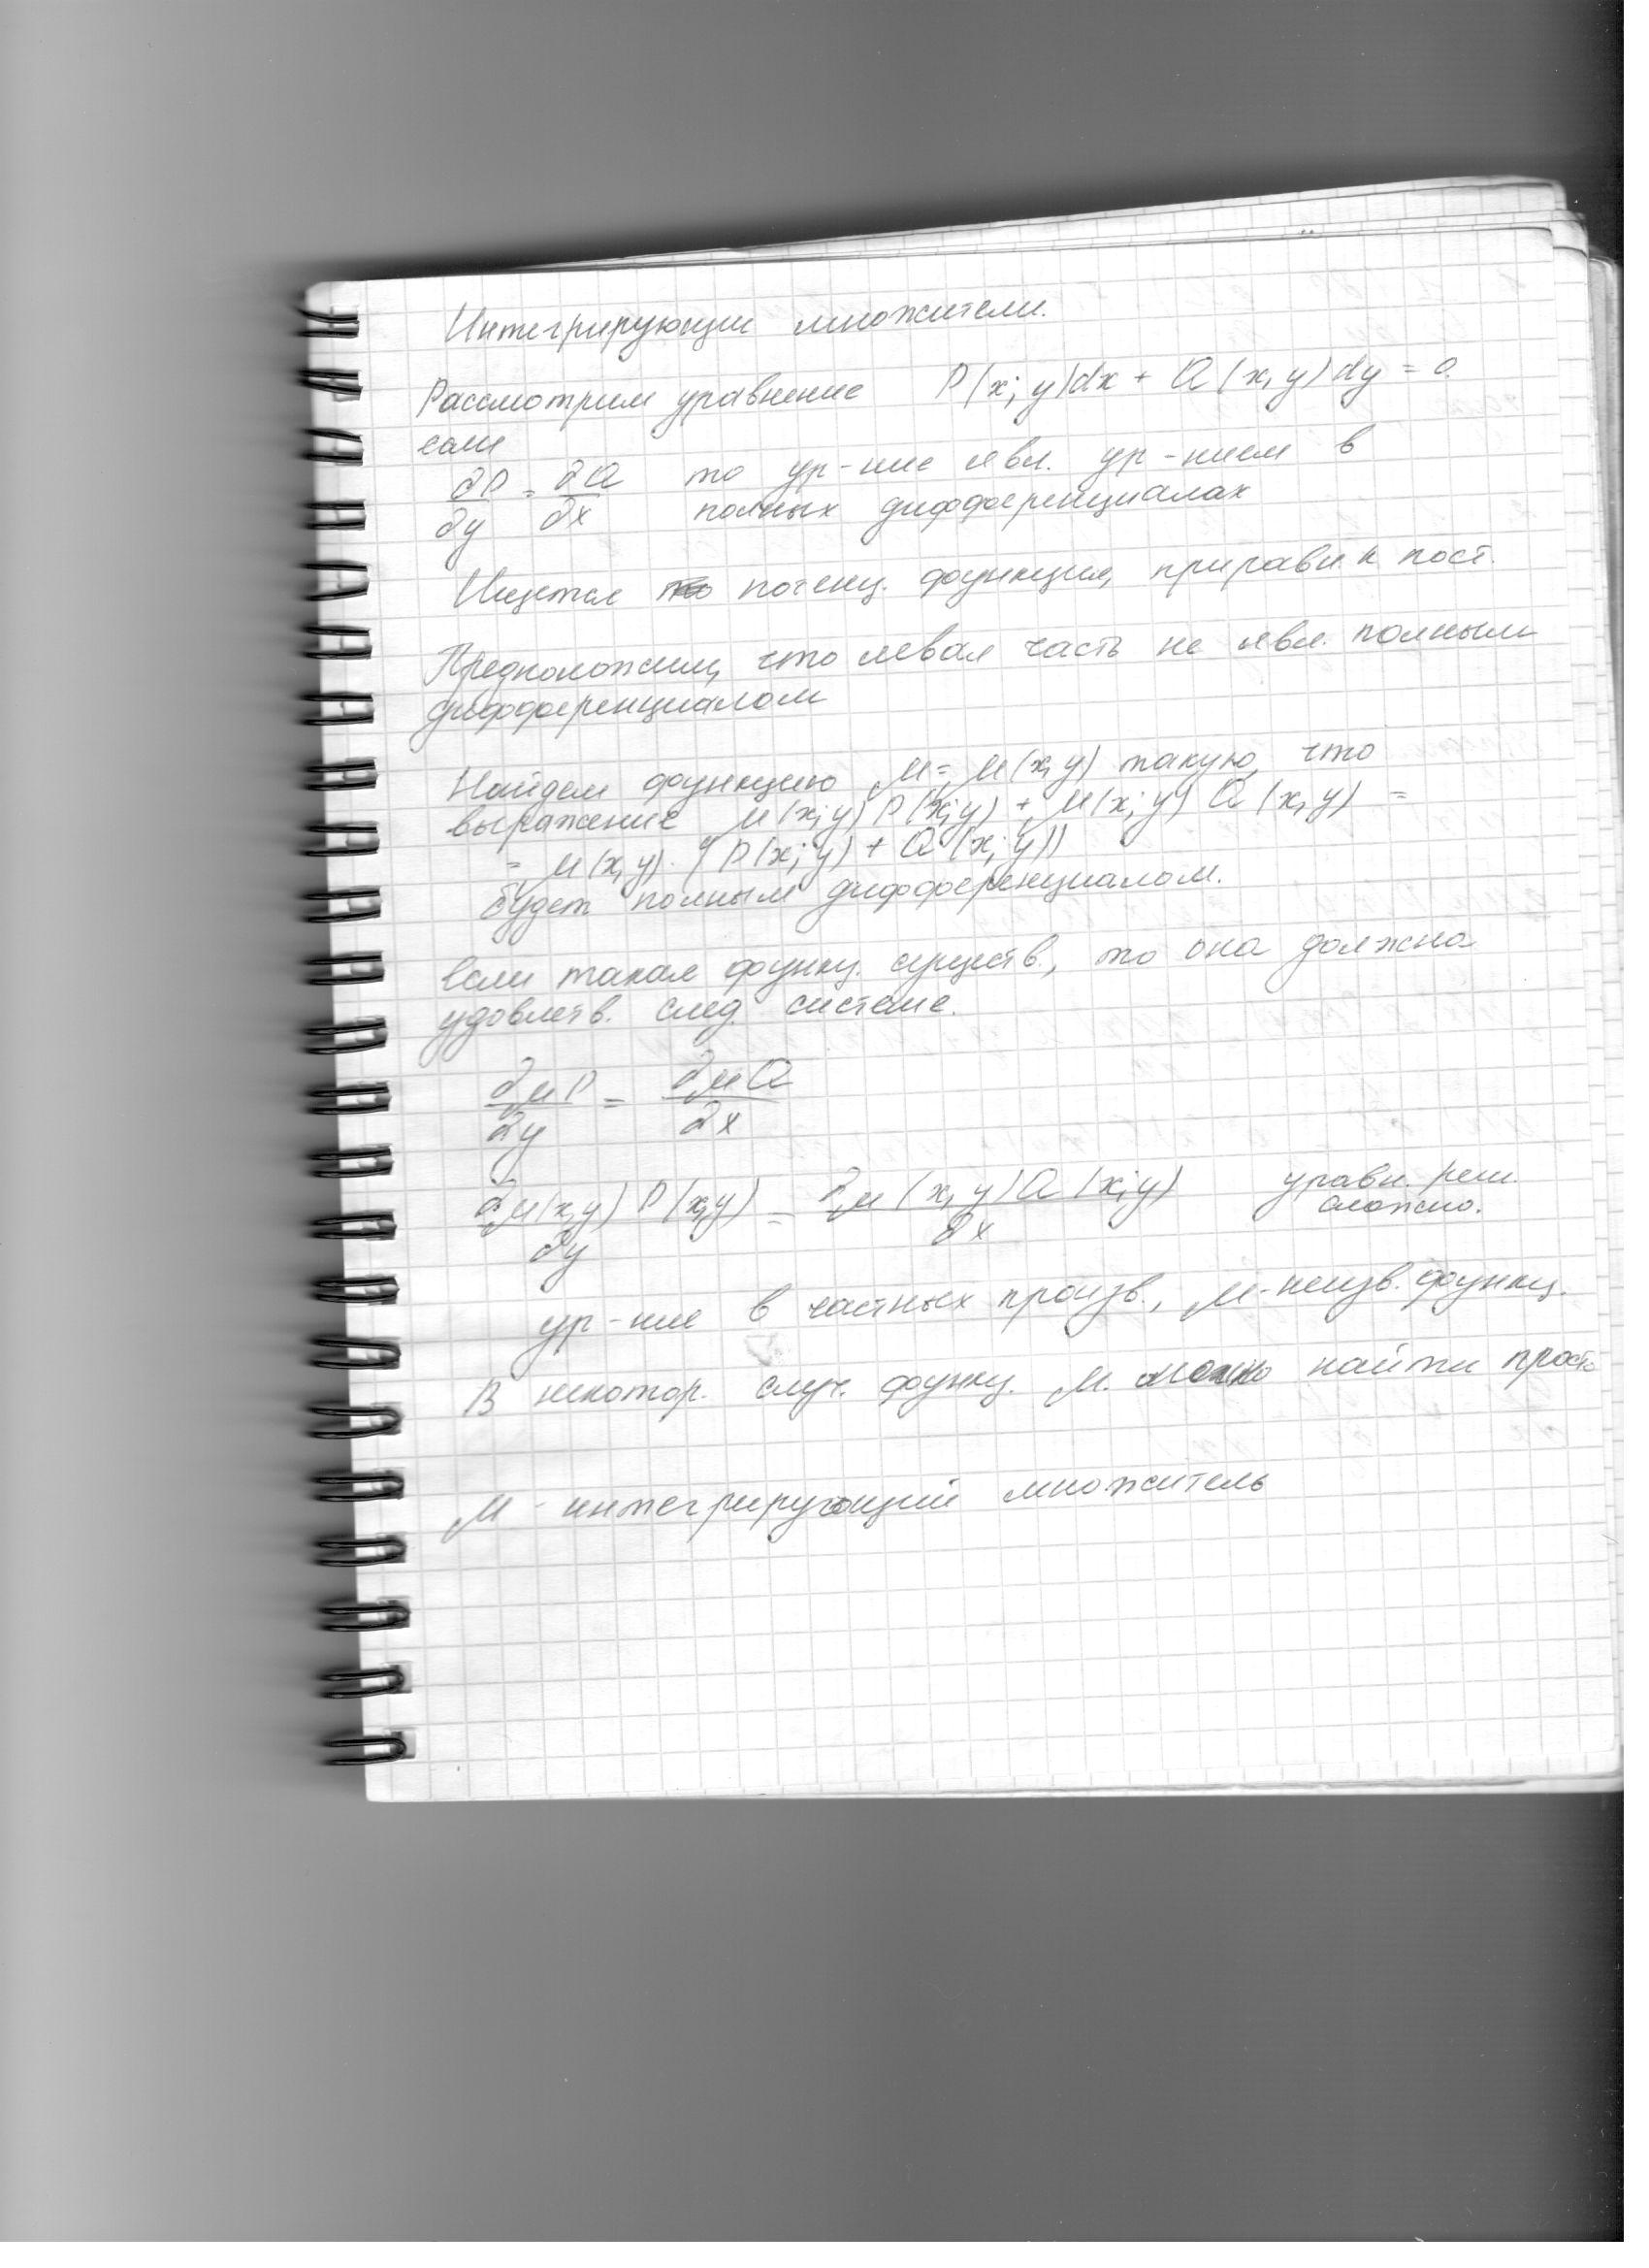 Интегрирующие множители.
Рассмотрим уравнение P(x; y)dx + Q(x, y)dy = 0.
если
∂P/∂y = ∂Q/∂x то ур-ние явл. ур-нием в
полных дифференциалах
Ищется потенц. функция, приравн. к пост.
Предположим, что левая часть не явл. полным
дифференциалом
Найдем функцию μ = μ(x, y) такую, что
выражение μ(x; y) P(x; y) + μ(x; y) Q(x, y) =
= μ(x, y) · (P(x; y) + Q(x; y))
будет полным дифференциалом.
Если такая функц. существ., то она должна
удовлетв. след. системе.
∂μP/∂y = ∂μQ/∂x
∂μ(x, y) P(x, y)/∂y = ∂μ(x, y) Q(x; y)/∂x уравн. реш.
сложно.
ур-ние в частных произв., μ-неизв. функц.
В некотор. случ. функц. μ. можно найти просто
μ - интегрирующий множитель